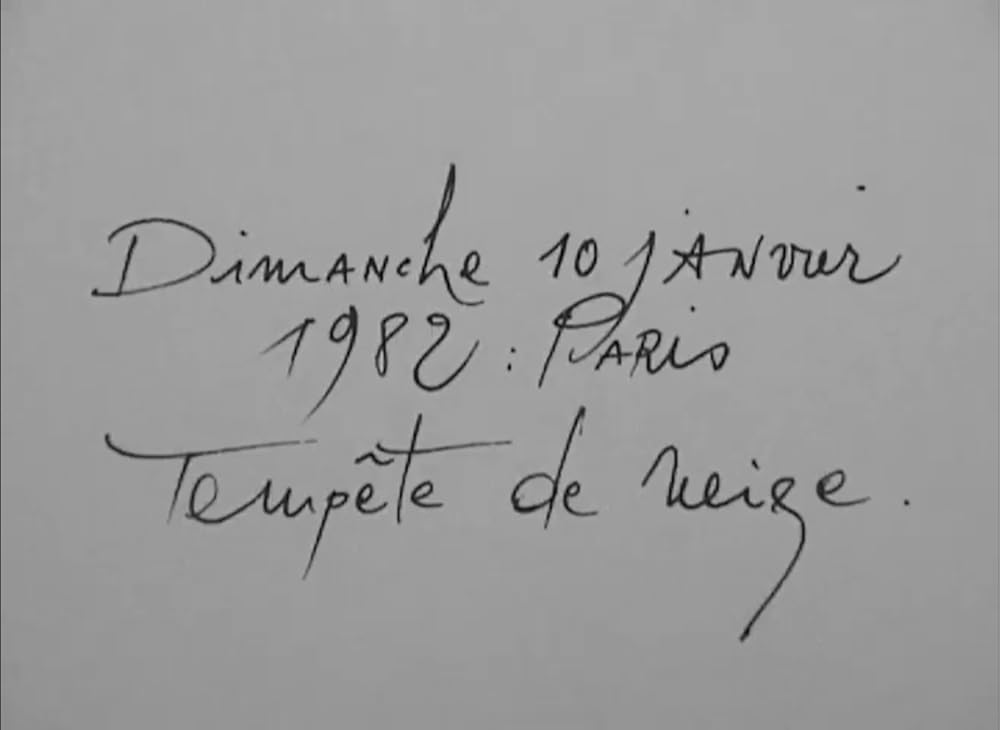 Dimanche 10 janvier
1982 : Paris
Tempête de neige.